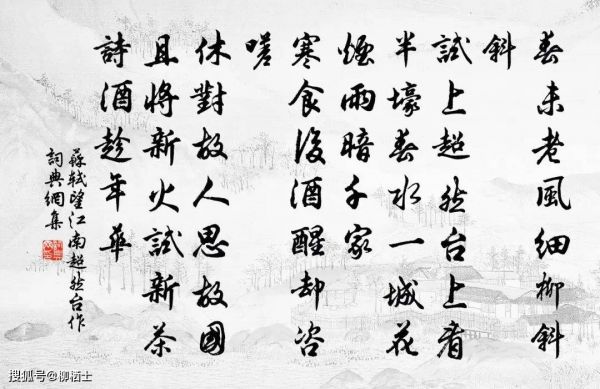 春未老風細柳斜
斜
試上超然台上看
半壕春水一城花
煙雨暗千家
寒食後酒醒却咨
嗟
休對故人思故國
且將新火試新茶
詩酒趁年華
蘇軾望江南超然台作
詞典網集
搜狐号@柳栖士